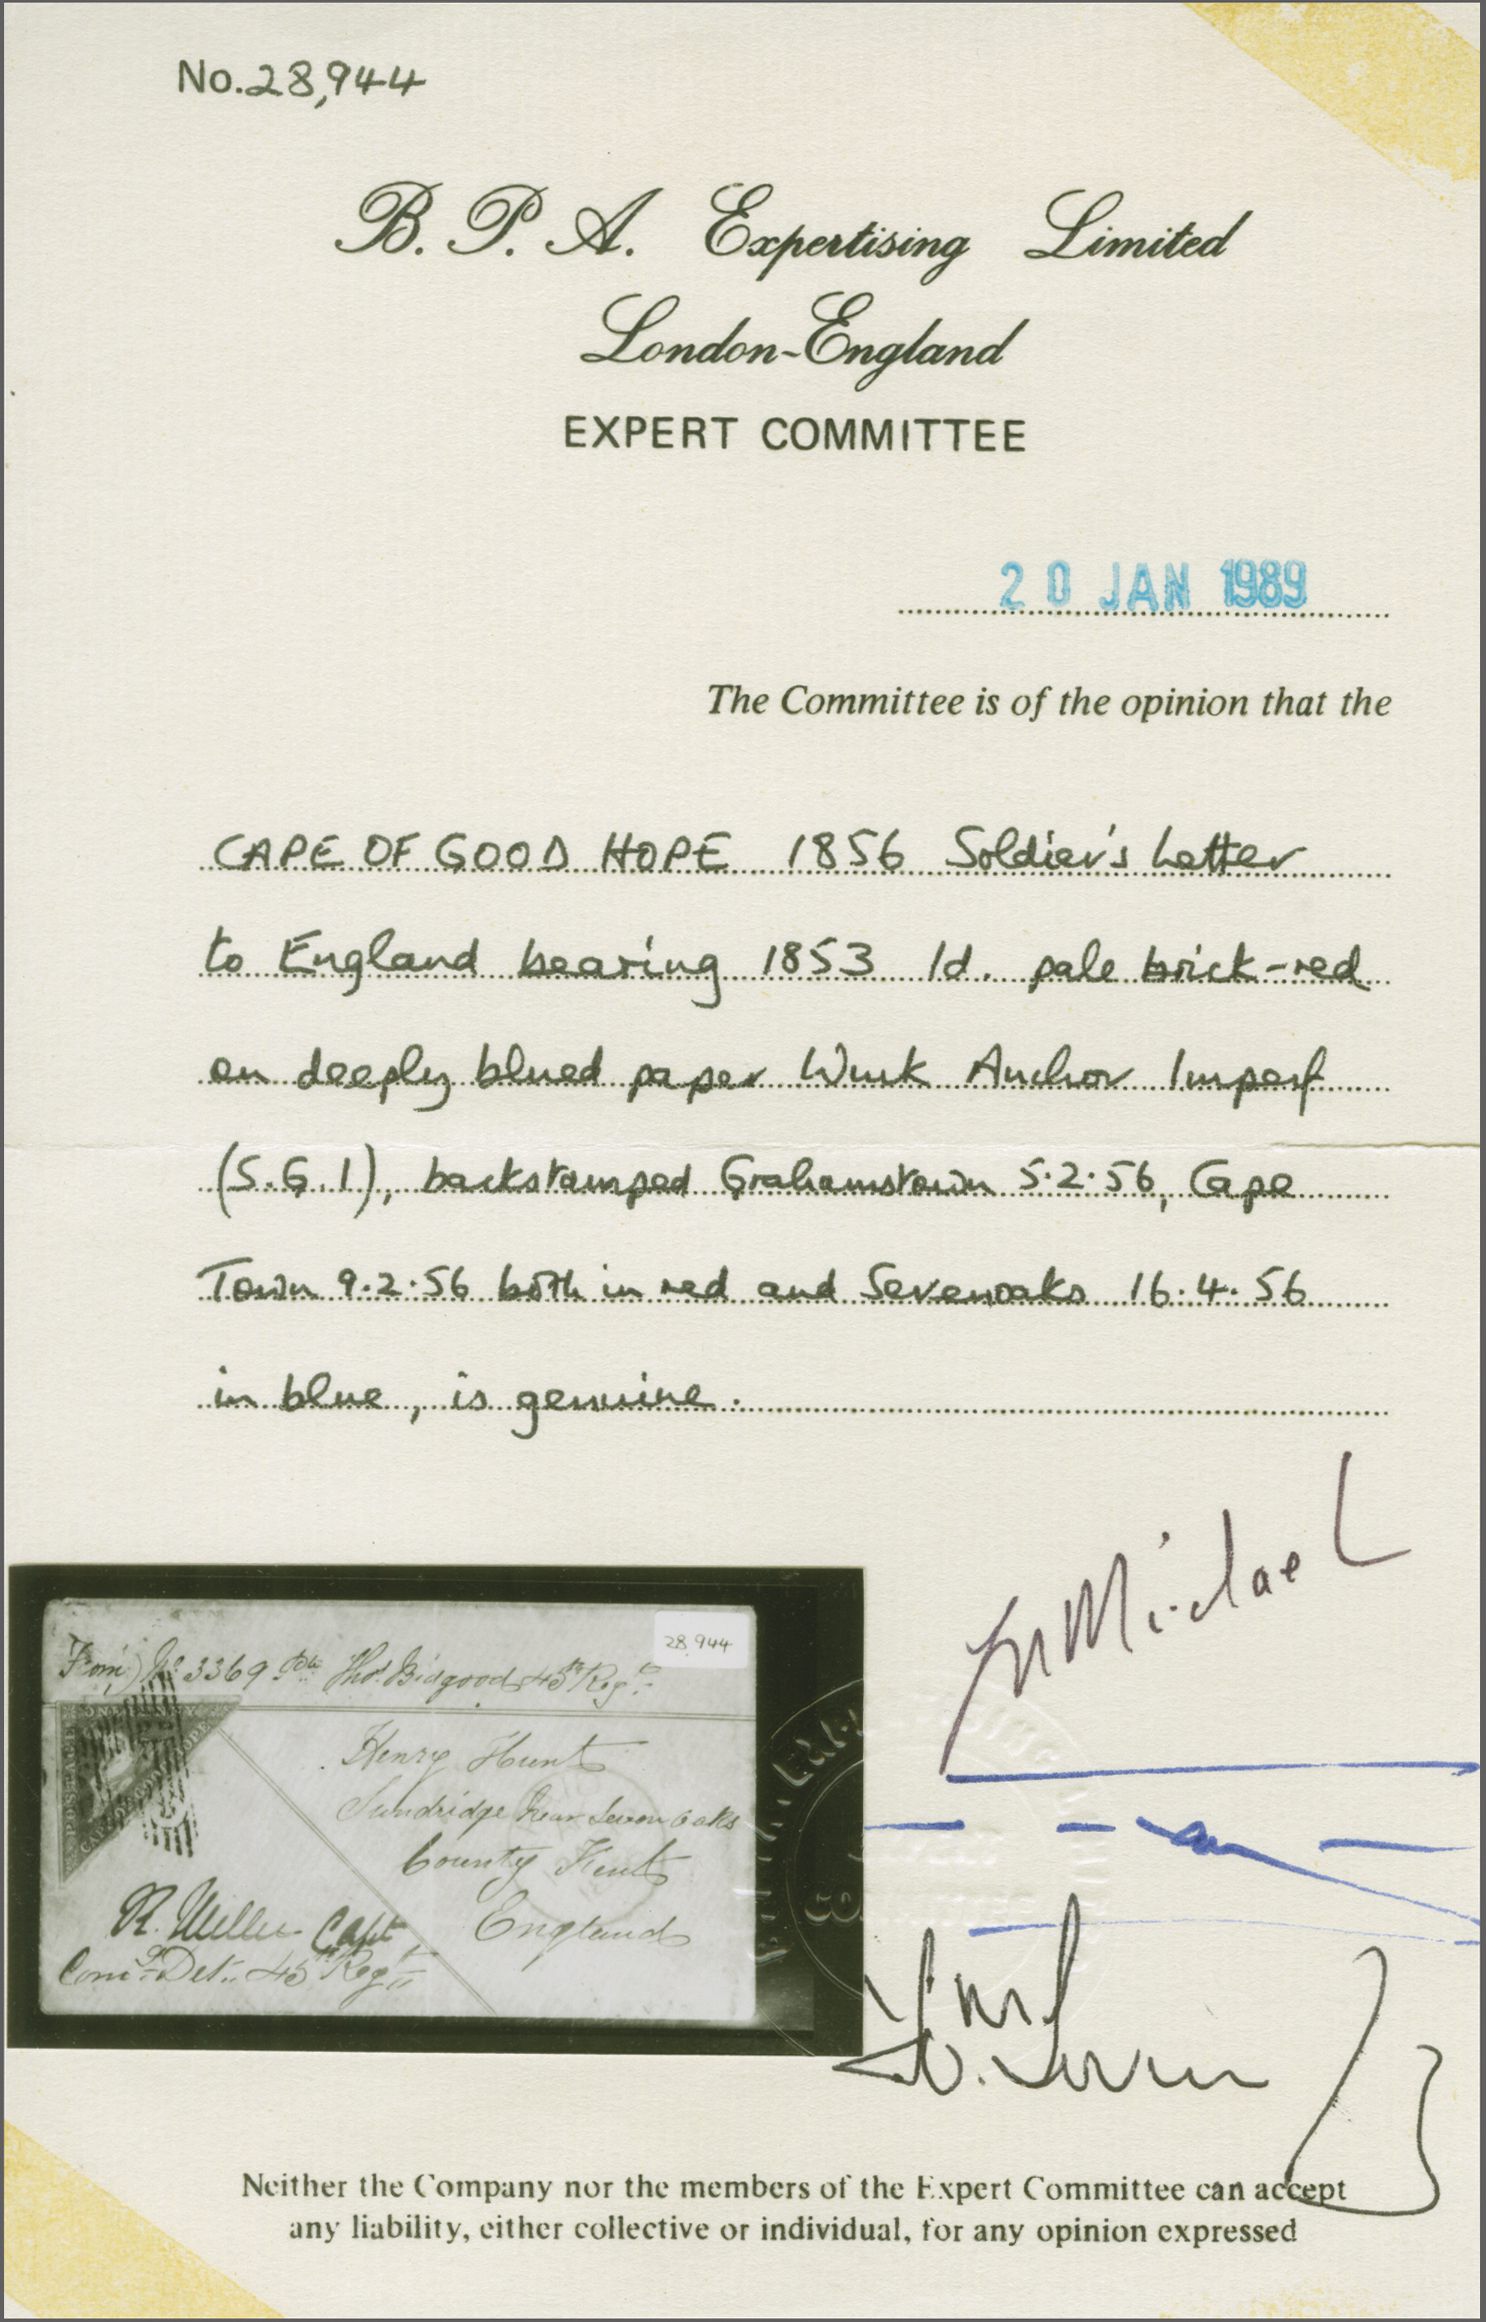 No. 28,944
B. P. A. Expertising Limited
London-England
EXPERT COMMITTEE
20 JAN 1989
The Committee is of the opinion that the
CAPE OF GOOD HOPE 1856 Soldier's Letter
to England bearing 1853 1d. pale brick-red
on deeply blued paper Wmk Anchor Imperf
(S.G.1), backstamped Grahamstown 5.2.56, Cape
Town 9.2.56 both in red and Sevenoaks 16.4.56
in blue, is genuine.
Michael
28,944
From) No 3369 Pte Thos. Bidgood 45th Regt
ONE PENNY
POSTAGE
CAPE OF GOOD HOPE
Henry Hunt
Sundridge Near Seven Oaks
County Kent
England
R. Miller Capt
Comg Det.. 45th Regt
Neither the Company nor the members of the Expert Committee can accept
any liability, either collective or individual, for any opinion expressed